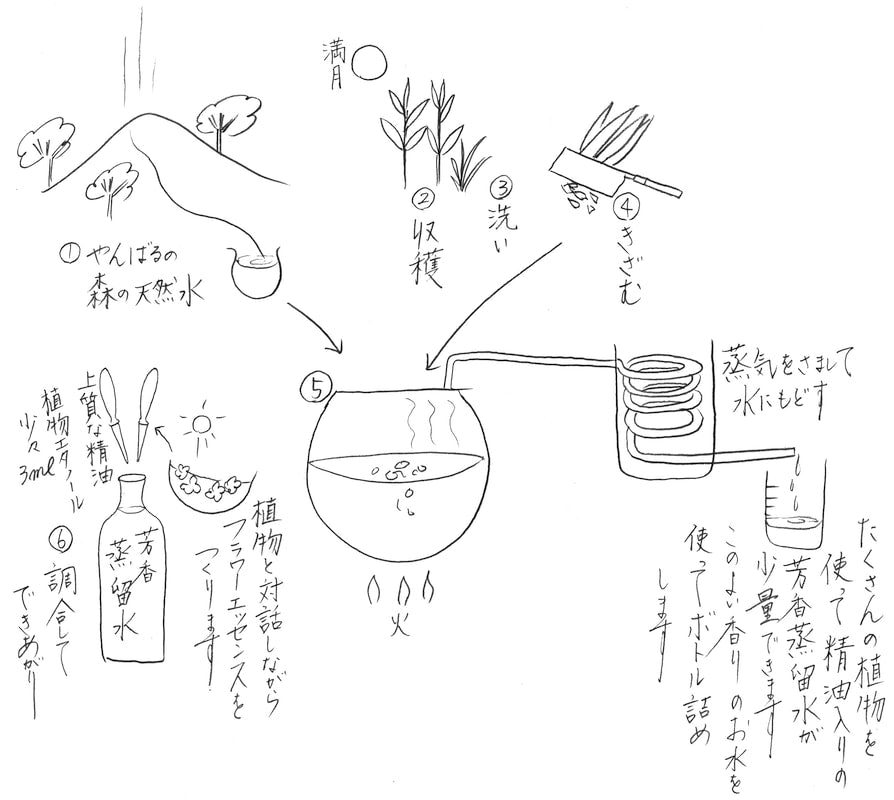 ① やんばるの
森の天然水
満月
② 収穫
③ 洗い
④ きざむ
⑤
火
蒸気をさまして
水にもどす
たくさんの植物を
使って精油入りの
芳香蒸留水が
少量できます
このよい香りのお水を
使ってボトル詰め
します
植物と対話しながら
フラワーエッセンスを
つくります
上質な精油
植物エタノール
少々
3ml
芳香
蒸留水
⑥ 調合して
できあがり